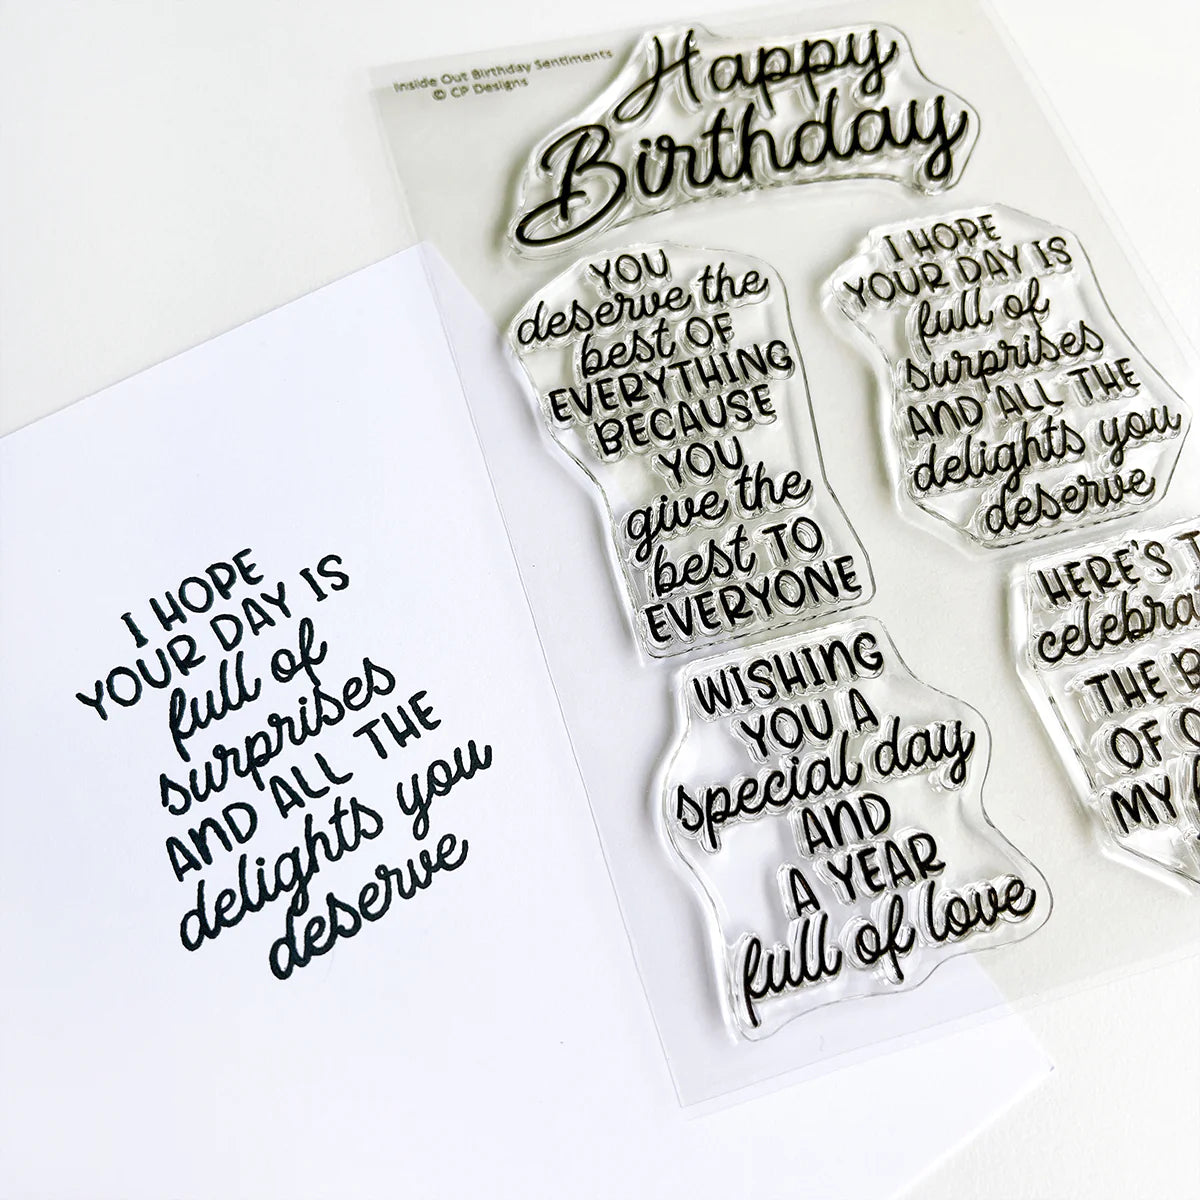 Inside Out Birthday Sentiments
© CP Designs
Happy
Birthday
YOU
deserve the
best OF
EVERYTHING
BECAUSE
YOU
give the
best TO
EVERYONE
I HOPE
YOUR DAY IS
full of
surprises
AND ALL THE
delights you
deserve
HERE'S
THE
OF
MY
WISHING
YOU A
special day
AND
A YEAR
full of love
I HOPE
YOUR DAY IS
full of
surprises
AND ALL THE
delights you
deserve